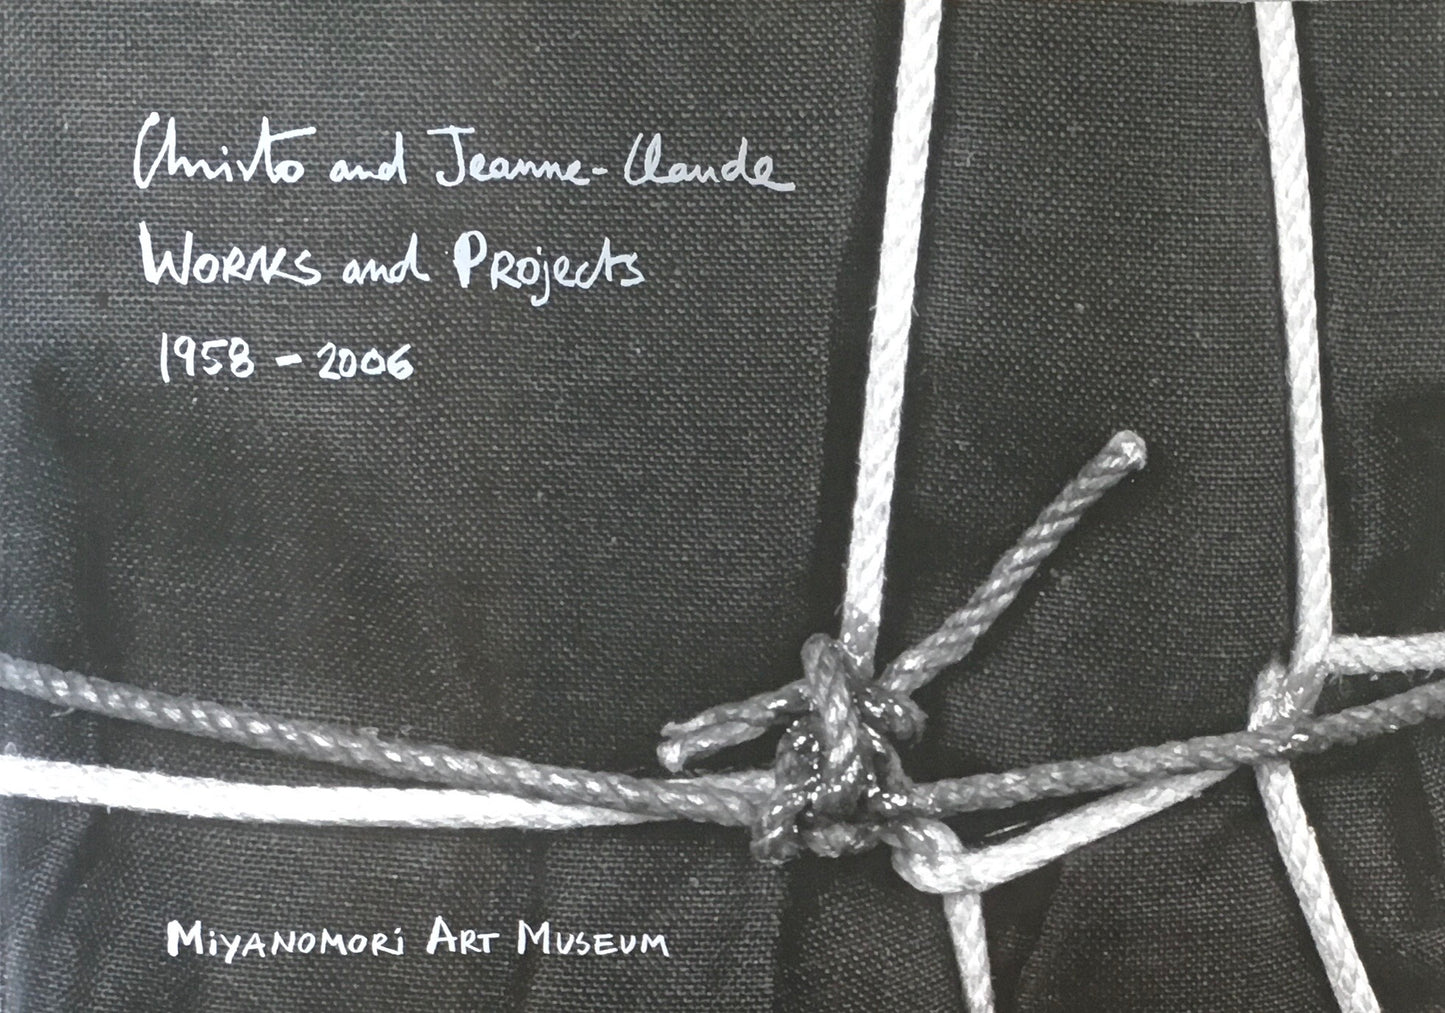 Christo and Jeanne-Claude
WORKS and PROjects
1958 - 2006
MiYANOMORi ART MUSEUM